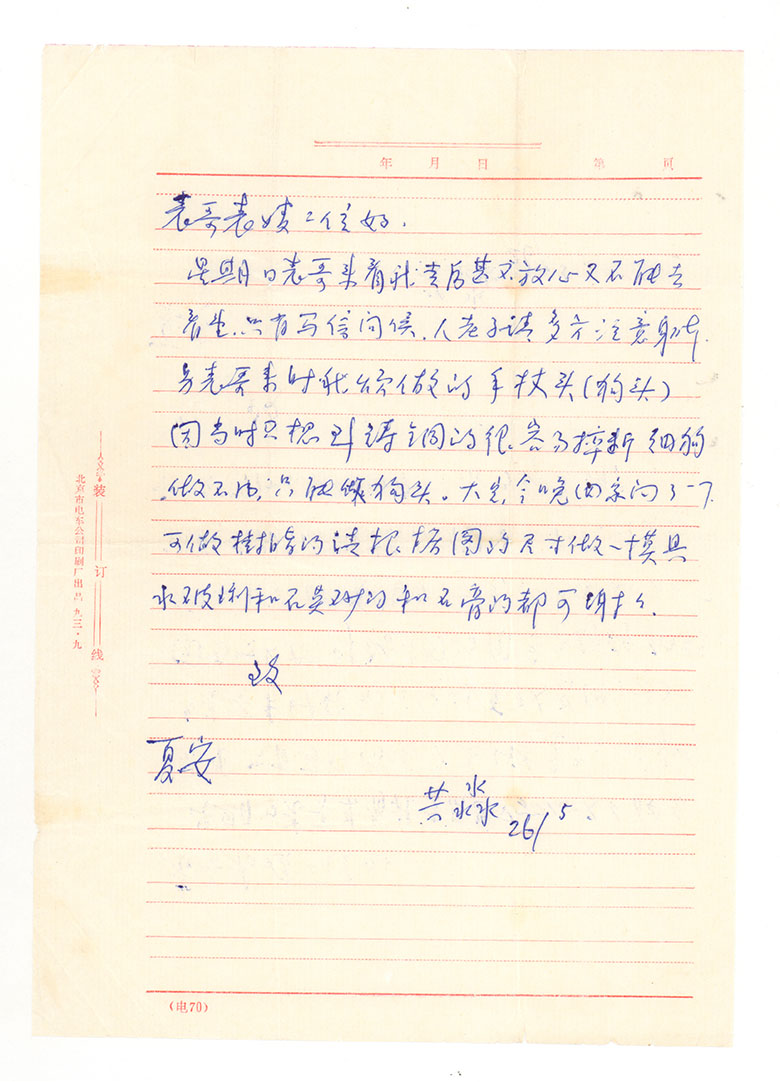 年 月 日 第 页
表哥表嫂二位好.
星期日表哥来看我走后甚不放心又不能去
看望.只有写信问候.人老了请多方注意身体.
另表哥来时我给做的手杖头(狗头)
因当时只想到铸铜的很容易摔断细狗
做不成,只能做狗头。大先今晚回家问了一下
可做树脂的请根据图的尺寸做一模具
水玻璃和石英砂的和石膏的都可
致
夏安
共淼 26/5.
装 订 线
北京市电车公司印刷厂出品 九三·九
(电70)